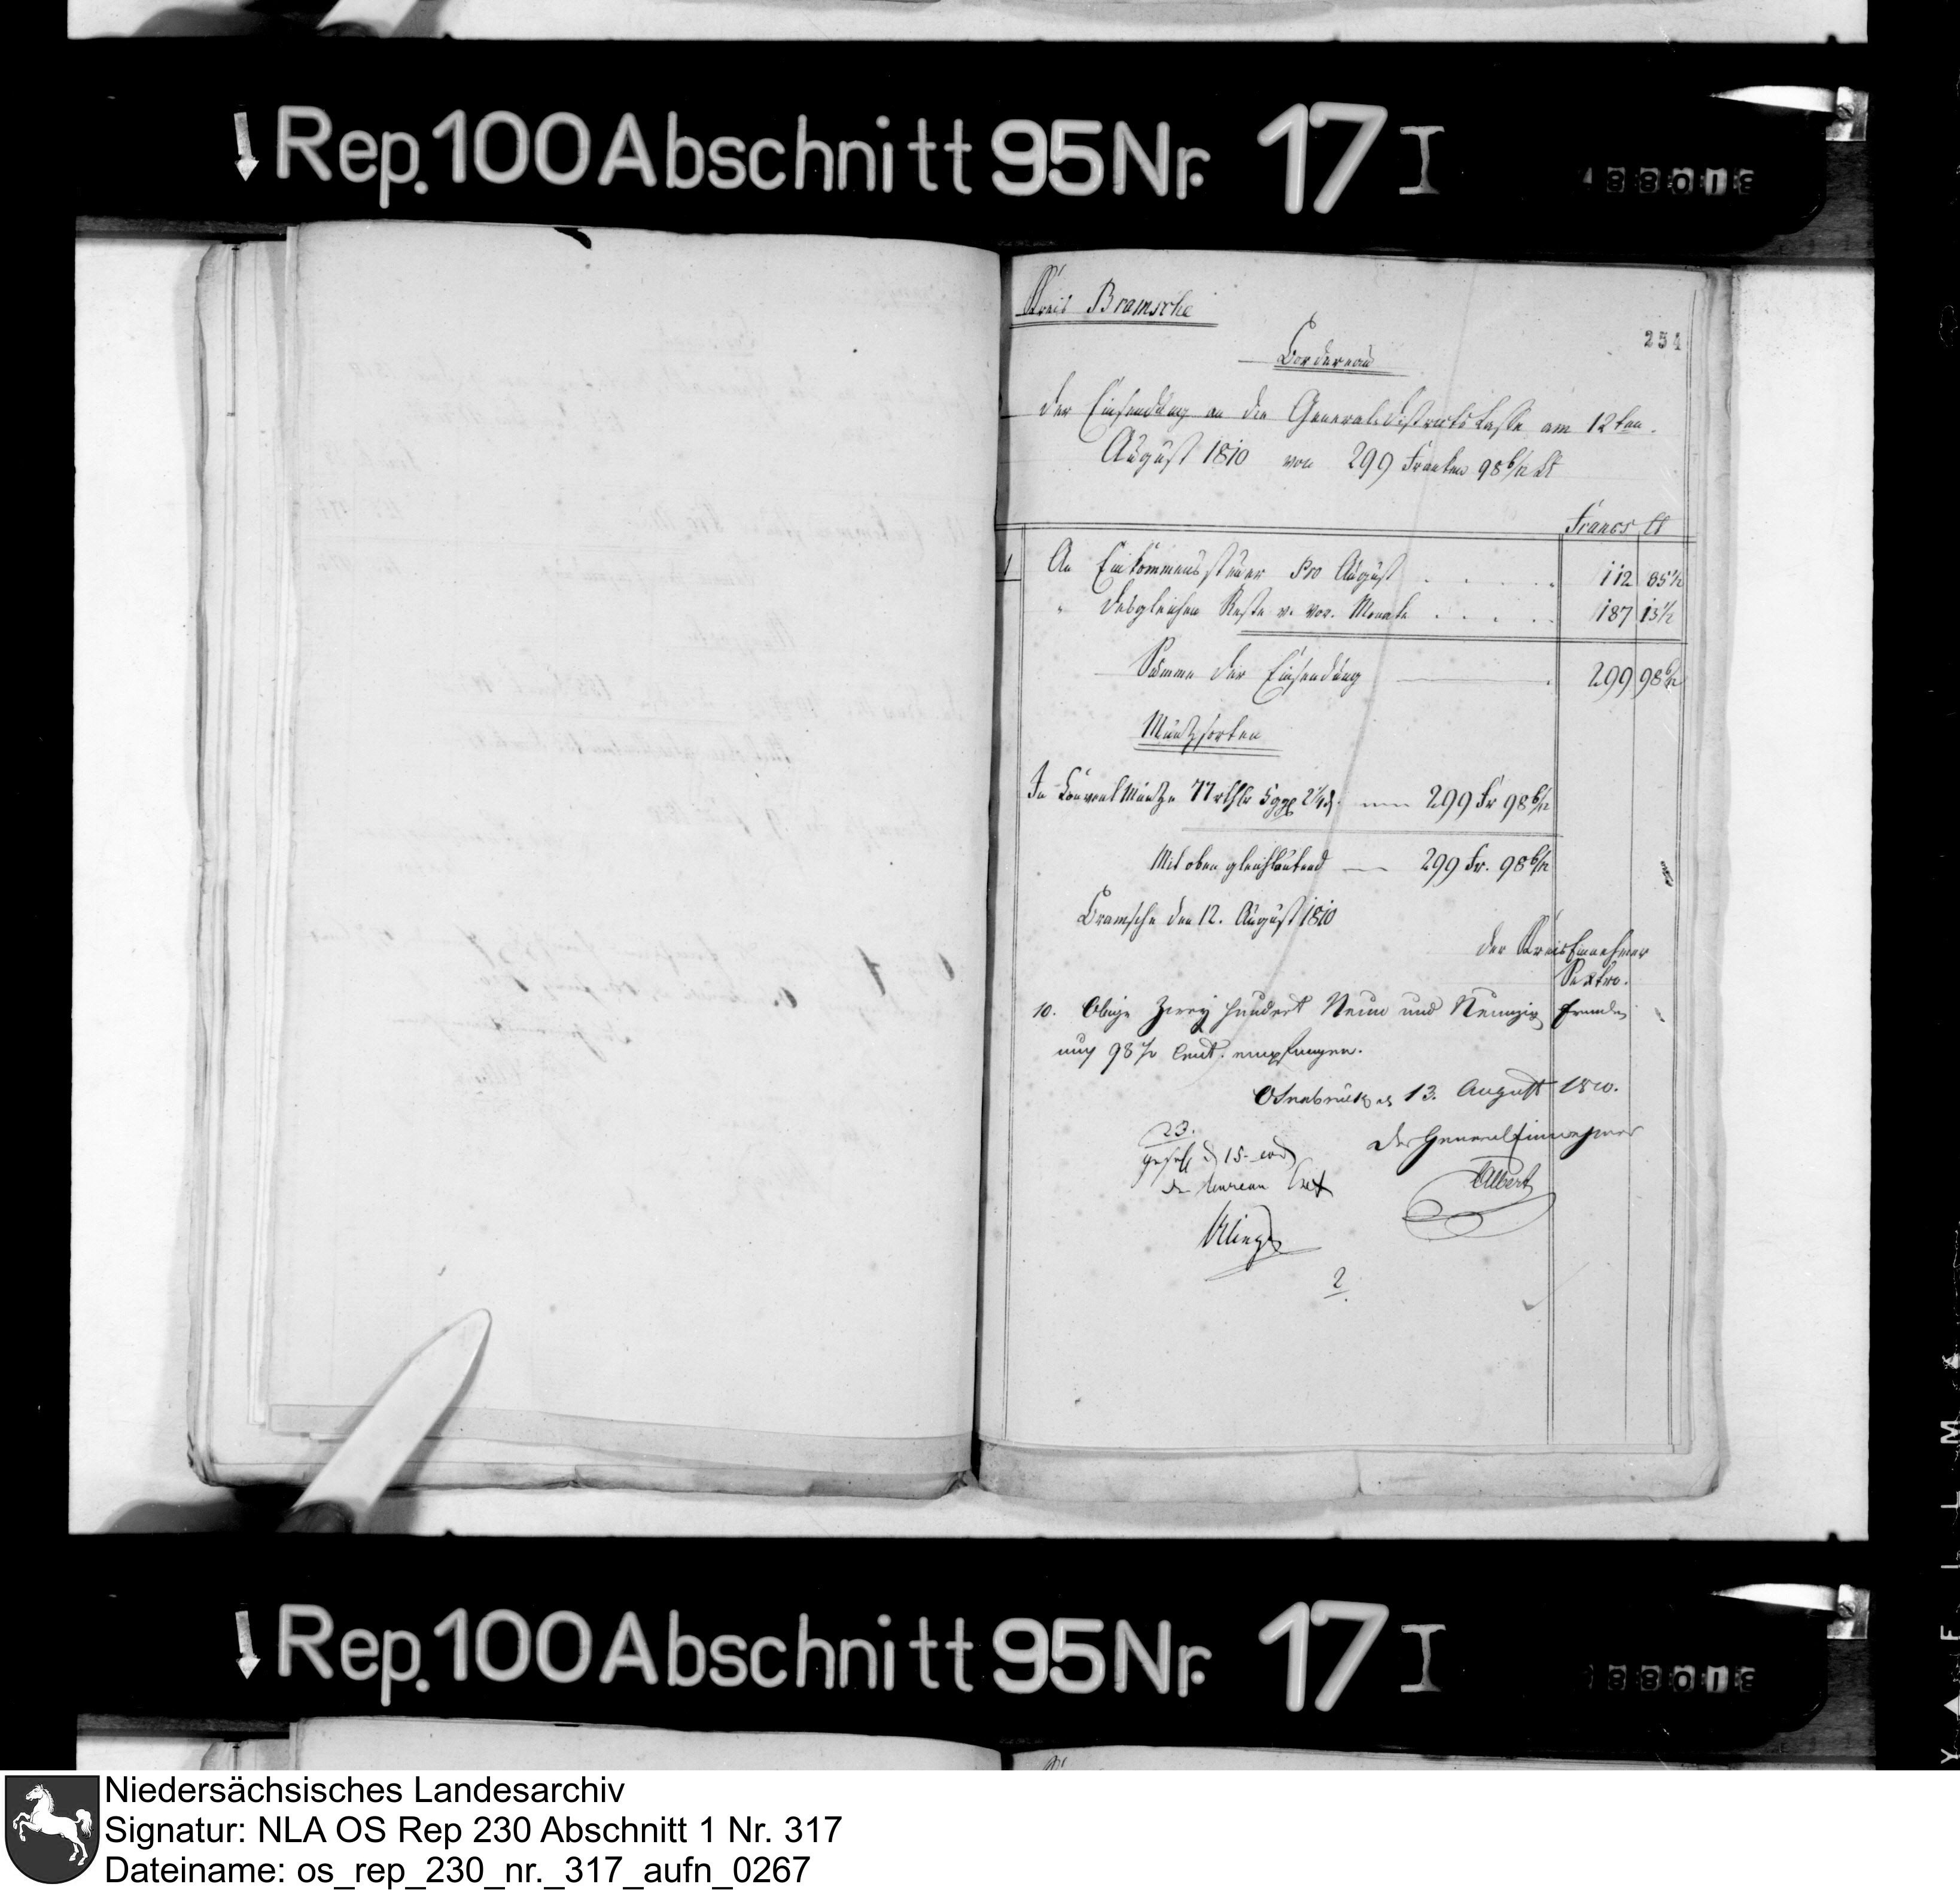 Rep. 100 Abschnitt 95 Nr. 17 I
Kreis Bramsche
254
Bordereau
der Einsendung an die General-Districts Casse am 12ten
August 1810 von 299 Franken 98 6/12 Ct
Francs Ct
1 An Einkommensteuer pro August . . . . . 112 85 1/2
" desgleichen Reste v. vor. Monate . . . . . 187 13 1/2
Summa der Einsendung 299 98 6/12
Müntzsorten
In Convent Müntze 77 rthlr 5 ggr 299 Fr 98 6/12
Mit oben gleichlautend — 299 Fr. 98 6/12
Bramsche den 12. August 1810
der Kreis Einnehmer
Sextro.
10. Obige Zwey hundert Neun und Neunzig Franken
98 Cent. empfangen.
Osnabrück d. 13. August 1810.
Der General Einnehmer
Albert
23.
d 15.
der Bureau Chef
2
Rep. 100 Abschnitt 95 Nr. 17 I
Niedersächsisches Landesarchiv
Signatur: NLA OS Rep 230 Abschnitt 1 Nr. 317
Dateiname: os_rep_230_nr._317_aufn_0267